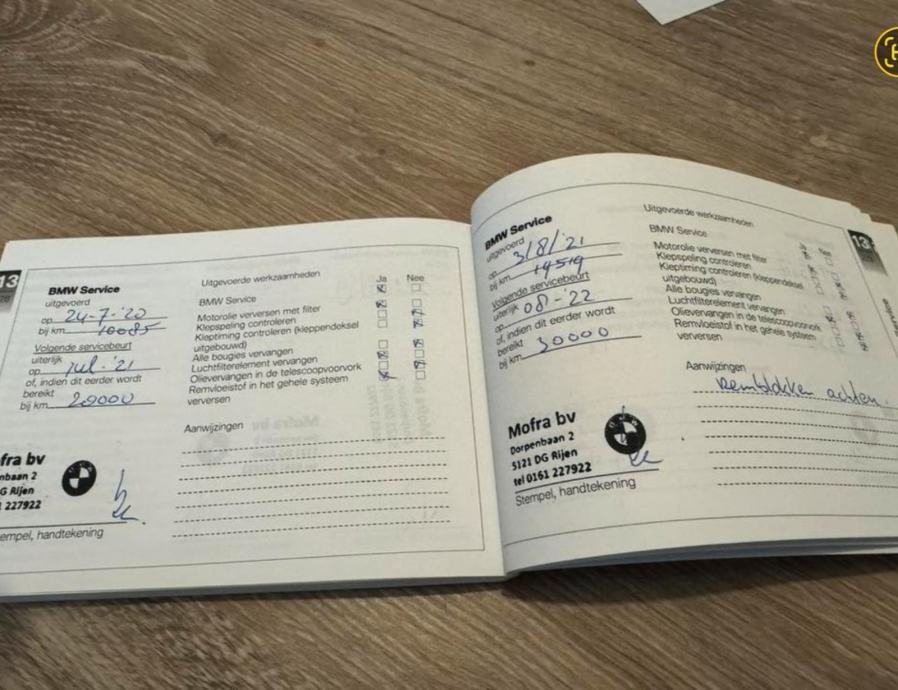 13
BMW Service
uitgevoerd
op 24-7-'20
bij km 10085
Volgende servicebeurt
uiterlijk
op jul-'21
of, indien dit eerder wordt
bereikt
bij km 20000
Uitgevoerde werkzaamheden
Ja Nee
BMW Service
Motorolie verversen met filter
Klepspeling controleren
Kleptiming controleren (kleppendeksel
uitgebouwd)
Alle bougies vervangen
Luchtfilterelement vervangen
Olievervangen in de telescoopvoorvork
Remvloeistof in het gehele systeem
verversen
Aanwijzingen
fra bv
nbaan 2
G Rijen
227922
empel, handtekening
BMW Service
uitgevoerd
op 3/8/'21
bij km
Volgende servicebeurt
uiterlijk
op 08-'22
of, indien dit eerder wordt
bereikt
bij km 30000
Uitgevoerde werkzaamheden
BMW Service
Motorolie verversen met filter
Klepspeling controleren
Kleptiming controleren (kleppendeksel
uitgebouwd)
Alle bougies vervangen
Luchtfilterelement vervangen
Olievervangen in de telescoopvoorvork
Remvloeistof in het gehele systeem
verversen
Aanwijzingen
Remblokken achter.
Mofra bv
Dorpenbaan 2
5121 DG Rijen
tel 0161 227922
Stempel, handtekening
13